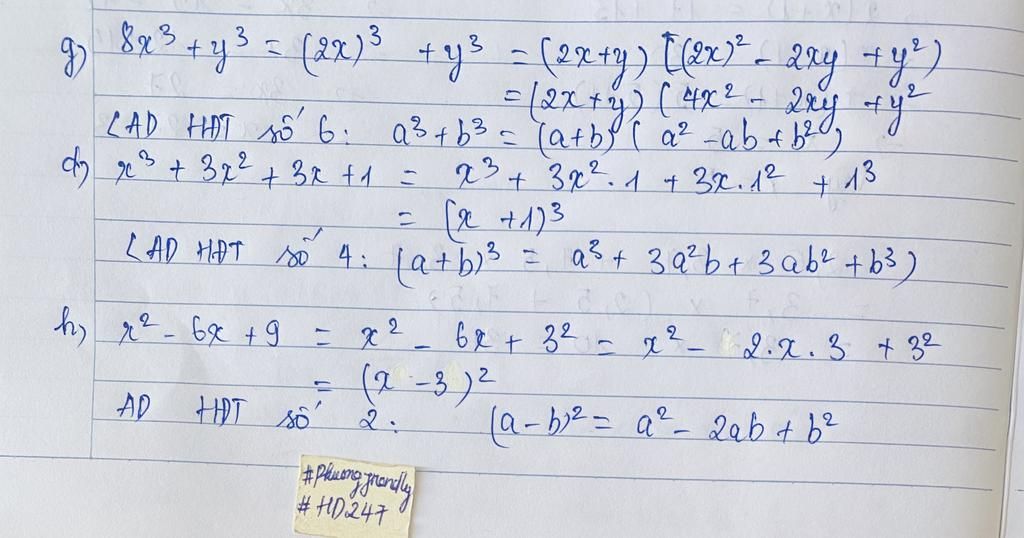 g) 8x³ + y³ = (2x)³ + y³ = (2x+y) [(2x)² - 2xy + y²)
= (2x+y) (4x² - 2xy + y²
(AD HĐT số 6: a³ + b³ = (a+b) (a² - ab + b²)
d) x³ + 3x² + 3x + 1 = x³ + 3x².1 + 3x.1² + 1³
= (x + 1)³
(AD HĐT số 4: (a+b)³ = a³ + 3a²b + 3ab² + b³)
h) x² - 6x + 9 = x² - 6x + 3² = x² - 2.x.3 + 3²
= (x - 3)²
AD HĐT số 2: (a-b)² = a² - 2ab + b²
# HD247